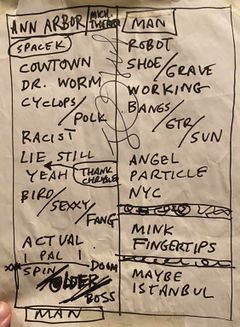 ANN ARBOR MICH. THEATER
SPACE K
COWTOWN
DR. WORM
CYCLOPS / POLK
RACIST
LIE STILL
YEAH THANK CHRYSLER
BIRD / SEXXY / FANG
ACTUAL
1 PAL 1
SPIN DOOM
OLDER
BOSS
MAN
MAN
ROBOT
SHOE / GRAVE
WORKING
BANGS / GTR / SUN
ANGEL
PARTICLE
NYC
MINK
FINGERTIPS
MAYBE
ISTANBUL